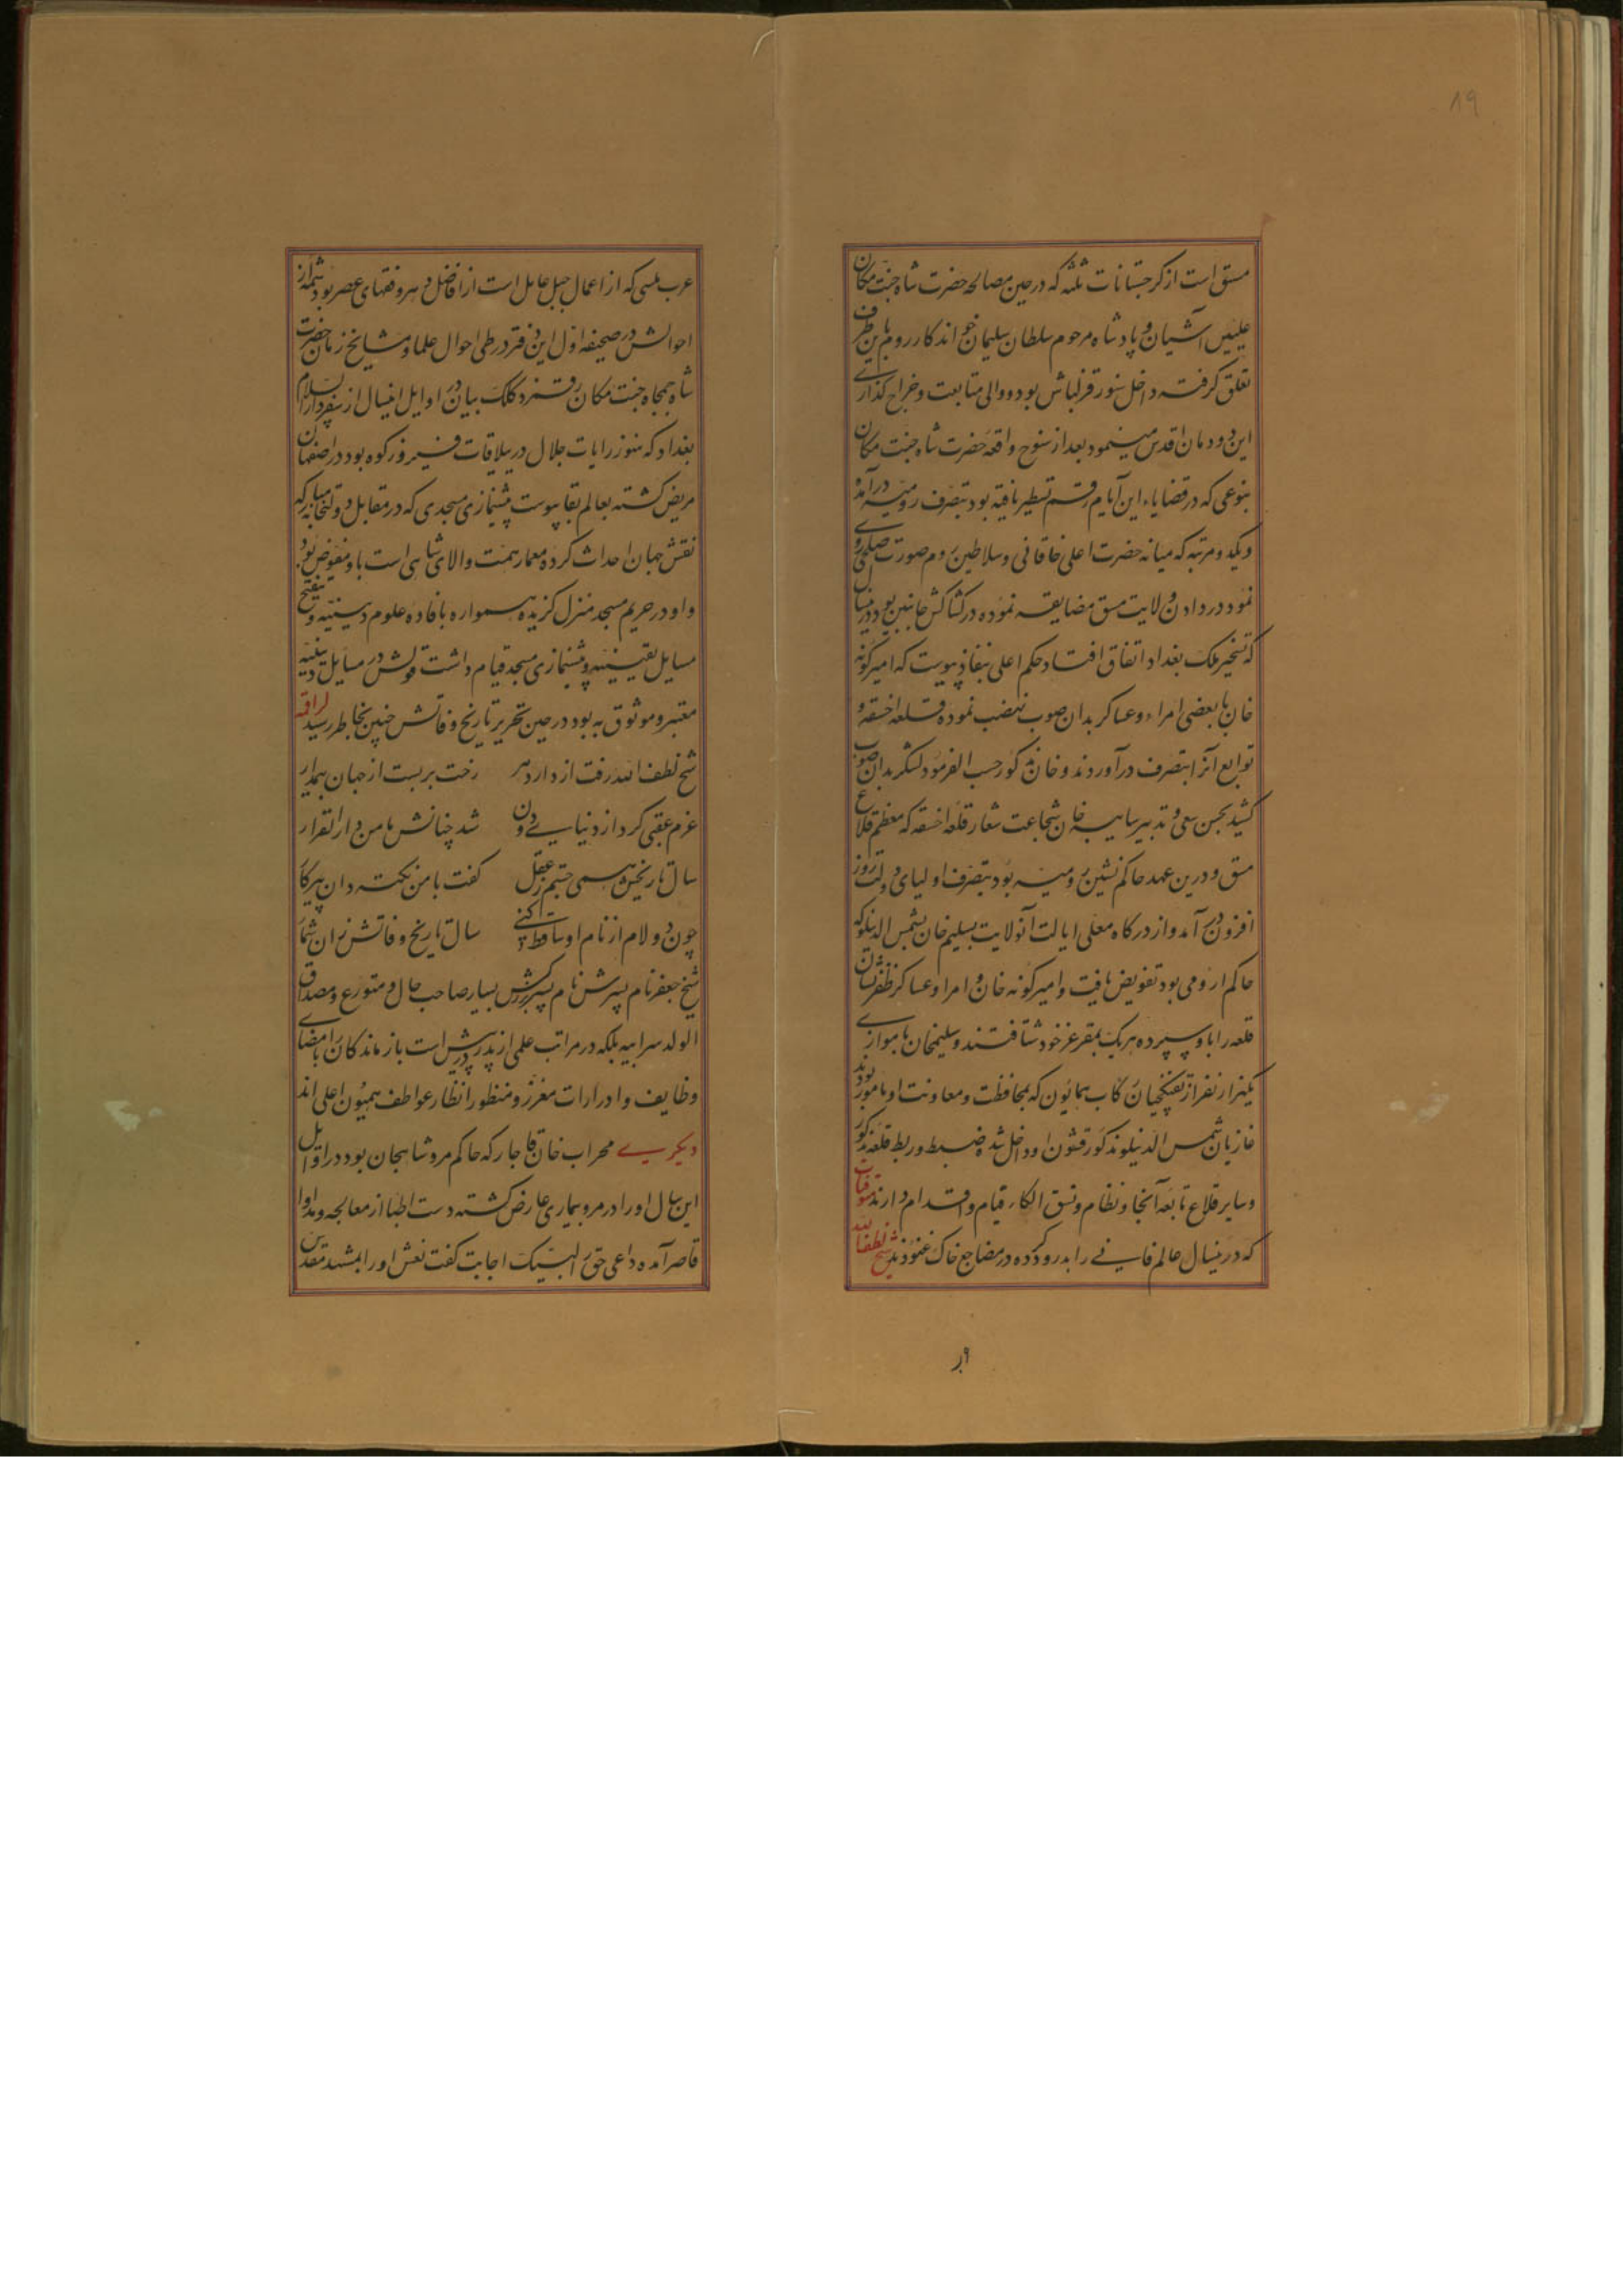 ۸۹
مسق است از گرجستانات ثلثه که در حین مصالحه حضرت شاه جنت مکان
علیین آشیان و پادشاه مرحوم سلطان سلیمان خواندکار روم باین طرف
تعلق گرفته داخل سنور قزلباش بود و والی متابعت و خراج گذاری
این دودمان اقدس مینمود بعد از سنوح واقعه حضرت شاه جنت مکان
بنوعی که در قضایاء این ایام رقم تسطیر یافته بود بتصرف رومیه درآمده
دیکدو مرتبه که میانه حضرت اعلی خاقانی و سلاطین روم صورت صلحی روی
نمود در دادن ولایت مسق مضایقه نموده در کشاکش جانبین بود درینسال
که تسخیر ملک بغداد اتفاق افتاد حکم اعلی بنفاذ پیوست که امیرگونه
خان با بعضی امراء و عساکر بدان صوب نهضت نموده قلعه اخسقه و
توابع آنرا بتصرف درآوردند و خان مذکور حسب الفرموده لشکر بدان صوب
کشید بحسن سعی و تدبیر سپاهیانه خان شجاعت شعار قلعه اخسقه که معظم قلاع
مسق و درین عهد حاکم نشین رومیه بود بتصرف اولیای دولت روز
افزون درآمد و از درگاه معلی ایالت آنولایت بسلیم خان شمس الدینلو که
حاکم ارومی بود تفویض یافت و امیرگونه خان و امرا و عساکر ظفر نشان
قلعه را باو سپرده هر یک بمقر عز خود شتافتند و سلیمخان با موازی
یکهزار نفر از تفنکچیان رکاب همایون که بمحافظت و معاونت او مامور بودند
غازیان شمس الدینلو مذکور قشون او داخل شده ضبط و ربط قلعه مذکور
و سایر قلاع تابعه آنجا و نظام و نسق الکاء قیام و اقدام دارند متوفیات
که درینسال عالم فانی را بدرود کرده در مضاجع خاک غنودند شیخ لطف الله
عرب میسی که از اعمال جبل عامل است از افاضل دهر و فقهای عصر بود شمه از
احوالش در صحیفه اول این دفتر در طی احوال علما و مشایخ زمان حضرت
شاه جمجاه جنت مکان رقمزد کلک بیان در اوایل اینسال از سفر دار السلام
بغداد که هنوز رایات جلال در ییلاقات فیروزکوه بود در اصفهان
مریض گشته بعالم بقا پیوست پیشنمازی مسجدی که در مقابل دولتخانه مبارکه
نقش جهان احداث کرده معمار همت والای شاهی است باو مفوض بود
و او در حریم مسجد منزل گزیده همواره بافاده علوم دینیه و تنقیح
مسایل یقینیه و پیشنمازی مسجد قیام داشت قولش در مسایل دینیه
معتبر و موثوق به بود در حین تحریر تاریخ وفاتش چنین بخاطر رسید لراقمه
شیخ لطف الله رفت از دار دهر رخت بربست از جهان بیمدار
عزم عقبی کرد از دنیای دون شد چنانش مامن دار القرار
سال تاریخش همی جستم ز عقل گفت با من نکته دان پیر کار
چون دو لام از نام او ساقط کنی سال تاریخ وفاتش زان شمار
شیخ جعفر نام پسرش نام پسر بزرگش بسیار صاحب حال و متورع و مصداق
الولد سر ابیه بلکه در مراتب علمی از پدر در پیش است بازماندگان بامضای
وظایف و ادرارات معزز و منظور انظار عواطف همیون اعلی اند
دیگری محراب خان قاجار که حاکم مرو شاهجان بود در اوایل
این سال او را در مرو بیماری عارض گشته دست اطبا از معالجه و مداوا
قاصر آمده داعی حق را لبیک اجابت گفت نعش او را بمشهد مقدس